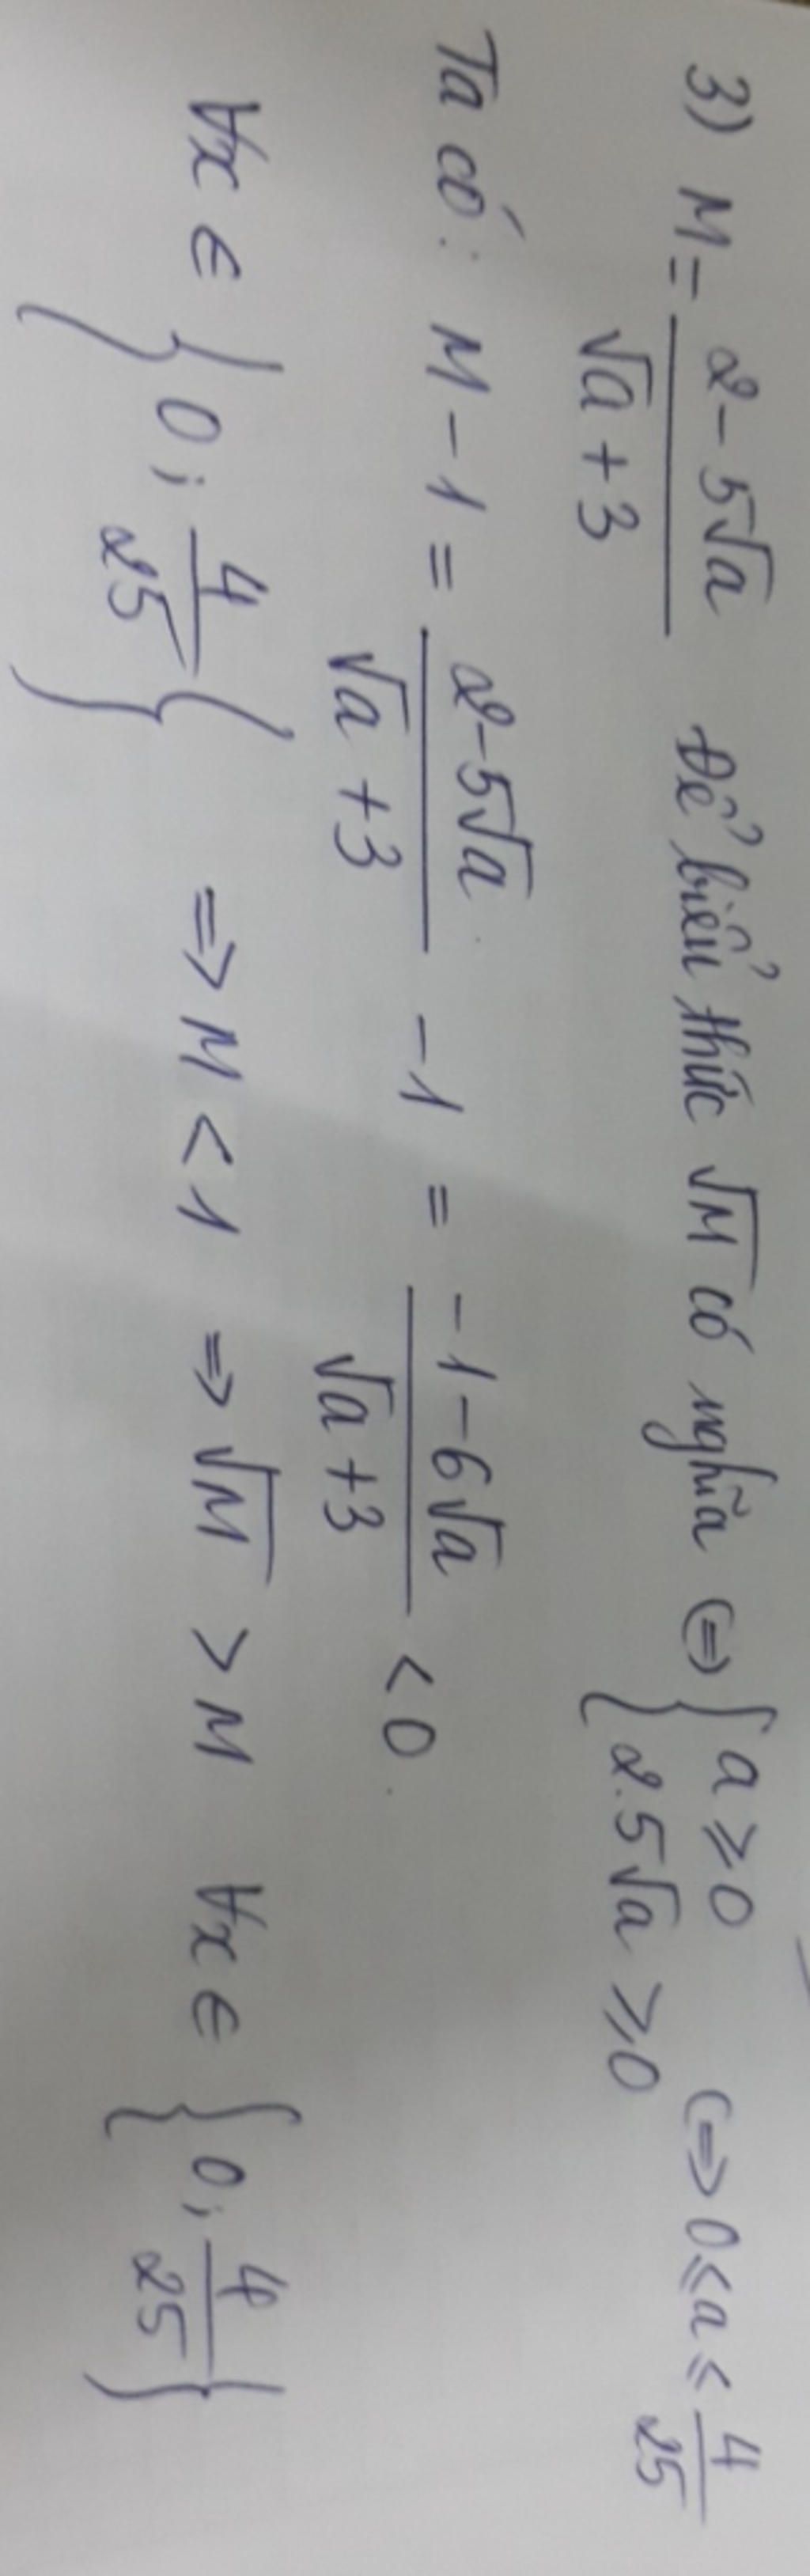 3) M = \frac{2-5\sqrt{a}}{\sqrt{a}+3} Để biểu thức \sqrt{M} có nghĩa <=> { a ⩾ 0 ; 2.5\sqrt{a} ⩾ 0 <=> 0 ⩽ a ⩽ \frac{4}{25}
Ta có: M - 1 = \frac{2-5\sqrt{a}}{\sqrt{a}+3} - 1 = \frac{-1-6\sqrt{a}}{\sqrt{a}+3} < 0.
∀x ∈ { 0 ; \frac{4}{25} } => M < 1 => \sqrt{M} > M ∀x ∈ { 0 ; \frac{4}{25} }